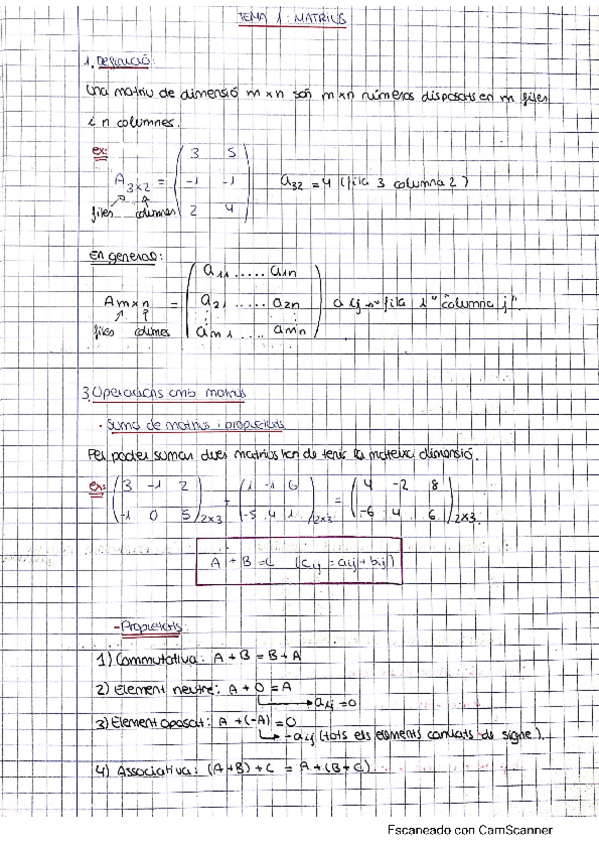 TEMA 1: MATRIUS
1. Definició:
Una matriu de dimensió m×n són m×n números disposats en m files
i n columnes.
ex:
A3×2 = ( 3 5 ; -1 -1 ; 2 4 ) a32 = 4 (fila 3 columna 2)
files columnes
En general:
Am×n = ( a11 ..... a1n ; a21 ..... a2n ; am1 .... amn ) aij → fila i "columna j".
files columnes
3. Operacions amb matrius
· Suma de matrius i propietats
Per poder sumar dues matrius han de tenir la mateixa dimensió.
ex: ( 3 -1 2 ; -1 0 5 )2×3 + ( 1 -1 6 ; -5 4 1 )2×3 = ( 4 -2 8 ; -6 4 6 )2×3
A + B = C (cij = aij + bij)
- Propietats:
1) Commutativa: A + B = B + A
2) Element neutre: A + 0 = A
→ aij = 0
3) Element oposat: A + (-A) = 0
→ -aij (tots els elements canviats de signe).
4) Associativa: (A+B) + C = A + (B+C)
Escaneado con CamScanner